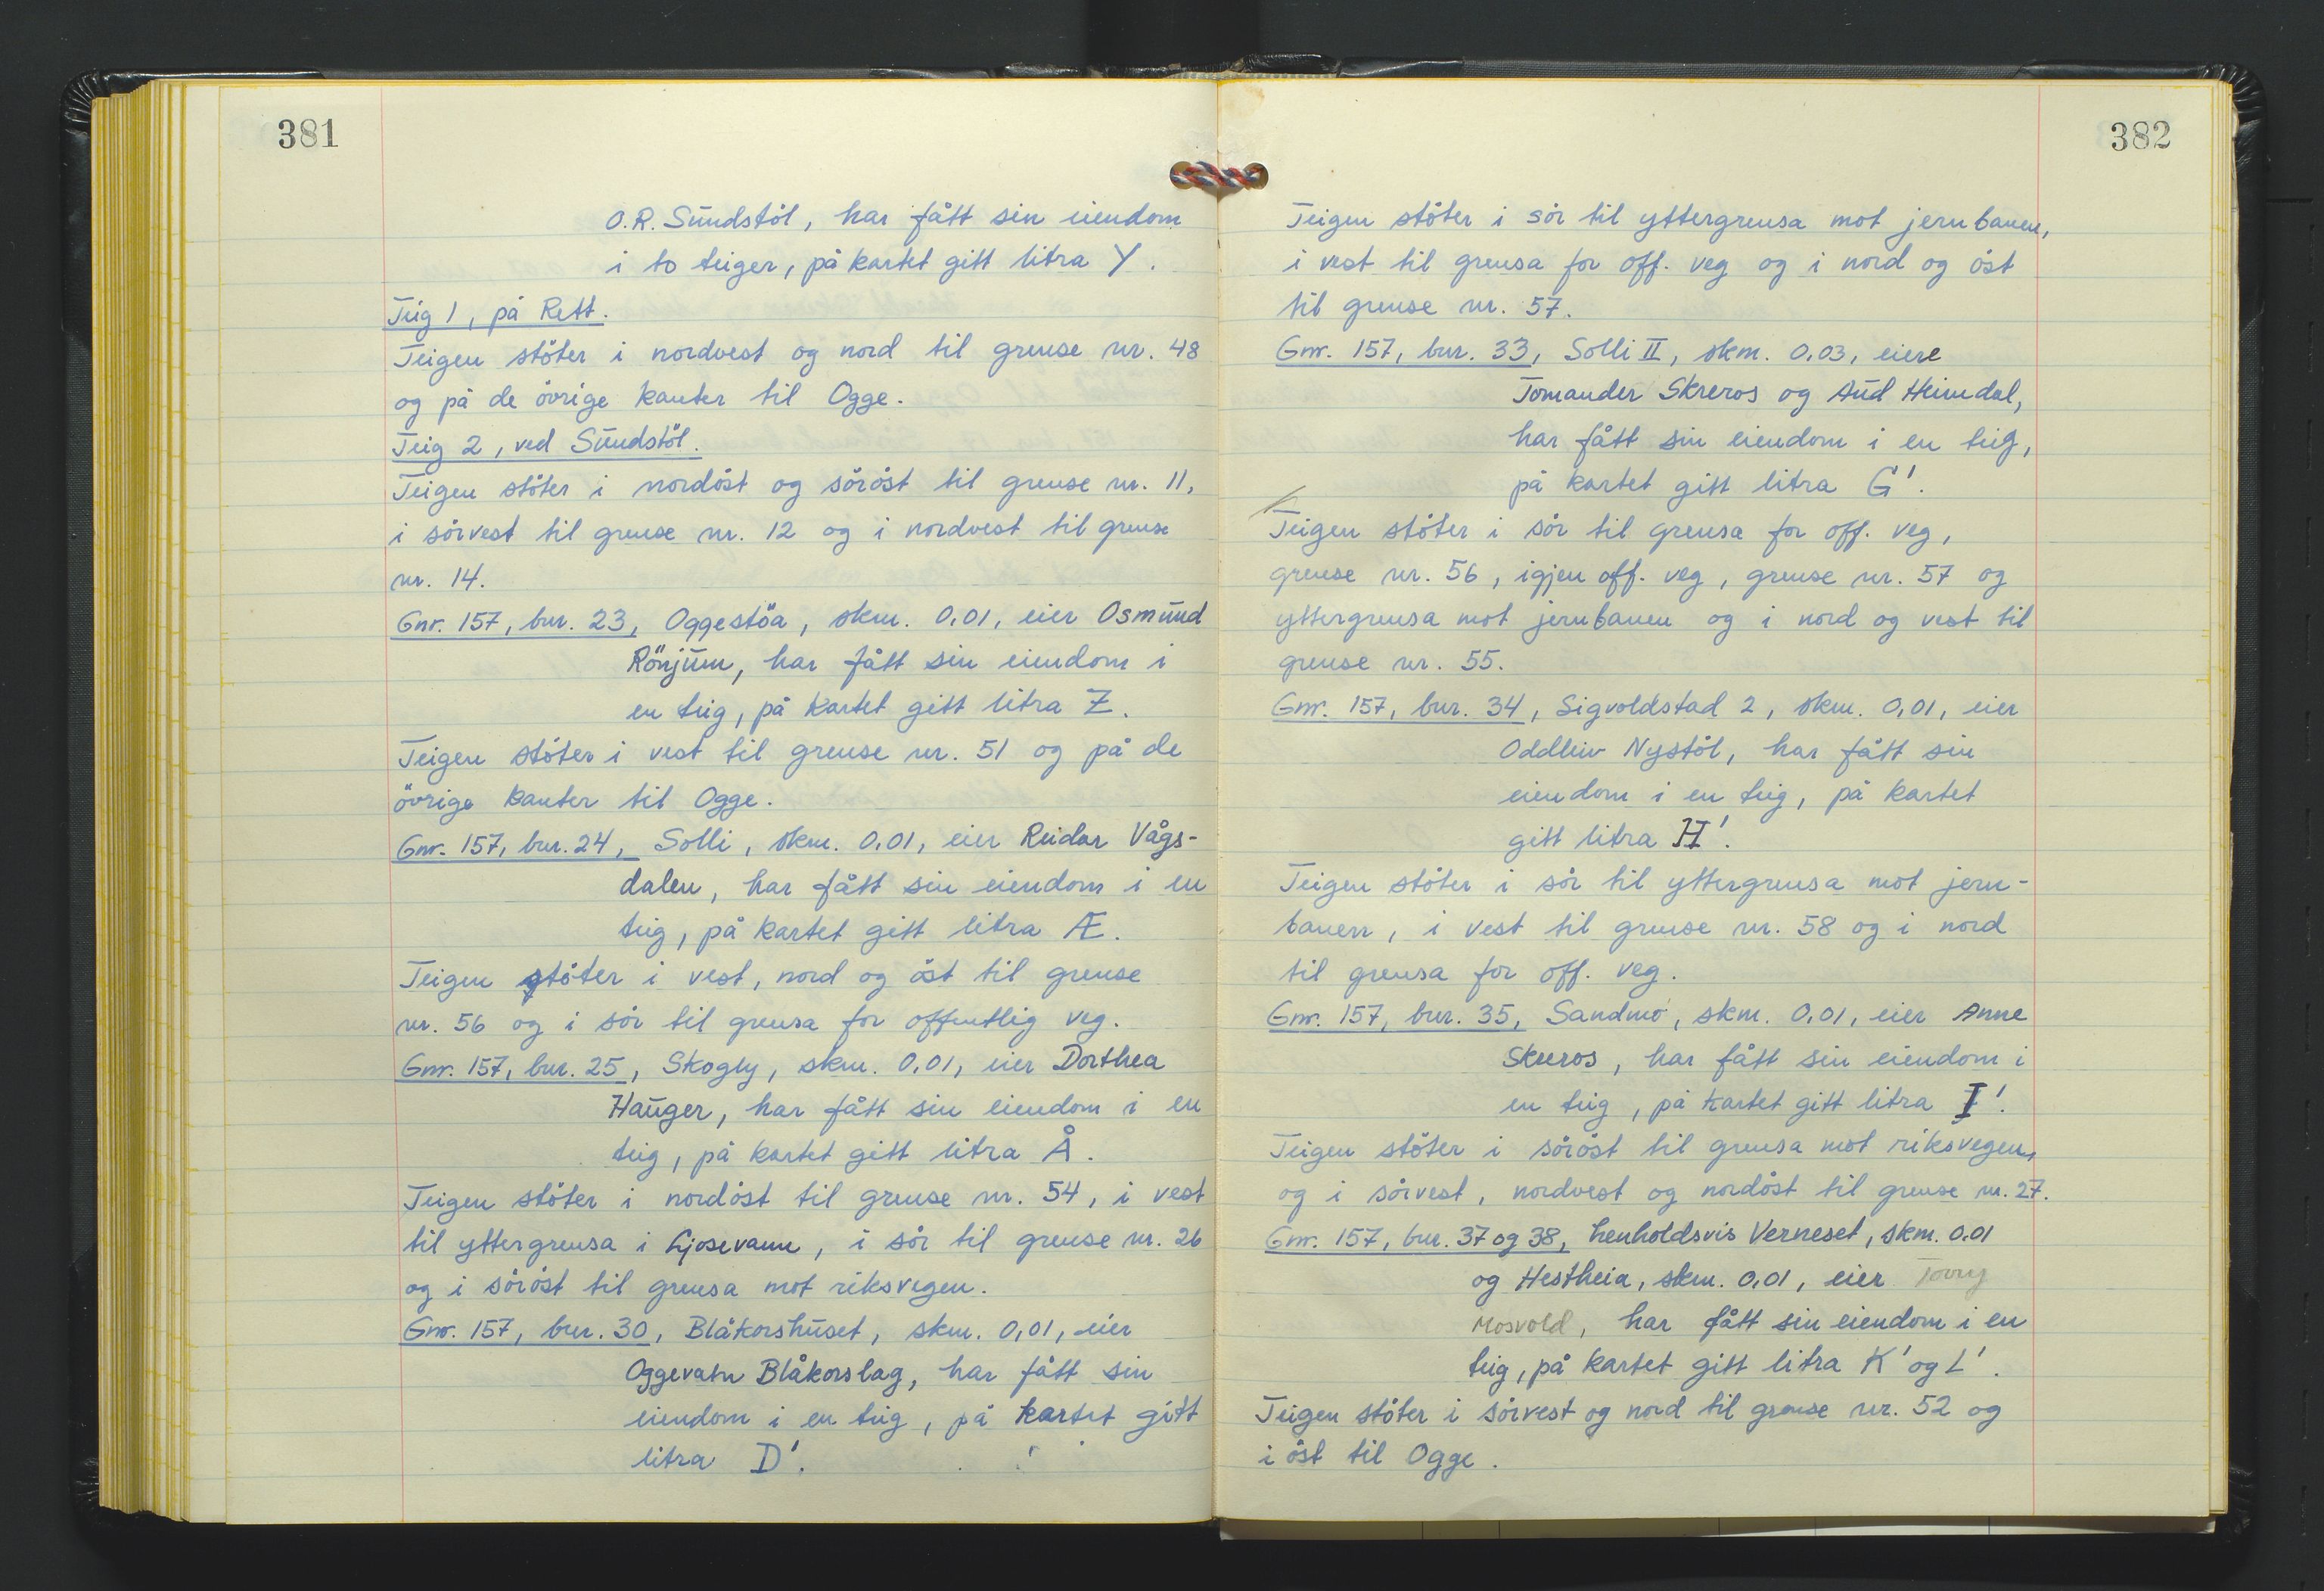 381
O.R. Sundstöl, har fått sin eiendom
i to teiger, på kartet gitt litra Y.
Teig 1, på Rett.
Teigen stöter i nordvest og nord til grense nr. 48
og på de övrige kanter til Ogge.
Teig 2, ved Sundstöl.
Teigen stöter i nordöst og söröst til grense nr. 11,
i sörvest til grense nr. 12 og i nordvest til grense
nr. 14.
Gnr. 157, bnr. 23, Oggestöa, skm. 0,01, eier Osmund
Rönjum, har fått sin eiendom i
en teig, på kartet gitt litra Z.
Teigen stöter i vest til grense nr. 51 og på de
övrige kanter til Ogge.
Gnr. 157, bnr. 24, Solli, skm. 0,01, eier Reidar Vågs-
dalen, har fått sin eiendom i en
teig, på kartet gitt litra Æ.
Teigen stöter i vest, nord og öst til grense
nr. 56 og i sör til grensa for offentlig veg.
Gnr. 157, bnr. 25, Skogly, skm. 0,01, eier Dorthea
Hauger, har fått sin eiendom i en
teig, på kartet gitt litra Å.
Teigen stöter i nordöst til grense nr. 54, i vest
til yttergrensa i Ljosevann, i sör til grense nr. 26
og i söröst til grensa mot riksvegen.
Gnr. 157, bnr. 30, Blåkorshuset, skm. 0,01, eier
Oggevatn Blåkorslag, har fått sin
eiendom i en teig, på kartet gitt
litra D'.
382
Teigen stöter i sör til yttergrensa mot jernbanen,
i vest til grensa for off. veg og i nord og öst
til grense nr. 57.
Gnr. 157, bnr. 33, Solli II, skm. 0,03, eiere
Tomander Skreros og Aud Heimdal,
har fått sin eiendom i en teig,
på kartet gitt litra G'.
Teigen stöter i sör til grensa for off. veg,
grense nr. 56, igjen off. veg, grense nr. 57 og
yttergrensa mot jernbanen og i nord og vest til
grense nr. 55.
Gnr. 157, bnr. 34, Sigvoldstad 2, skm. 0,01, eier
Oddleiv Nystöl, har fått sin
eiendom i en teig, på kartet
gitt litra H'.
Teigen stöter i sör til yttergrensa mot jern-
banen, i vest til grense nr. 58 og i nord
til grensa for off. veg.
Gnr. 157, bnr. 35, Sandmo, skm. 0,01, eier Anne
Skreros, har fått sin eiendom i
en teig, på kartet gitt litra I'.
Teigen stöter i söröst til grensa mot riksvegen,
og i sörvest, nordvest og nordöst til grense nr. 27.
Gnr. 157, bnr. 37 og 38, henholdsvis Verneset, skm. 0.01
og Hestheia, skm. 0,01, eier
Mosvold, har fått sin eiendom i en
teig, på kartet gitt litra K' og L'.
Teigen stöter i sörvest og nord til grense nr. 52 og
i öst til Ogge.